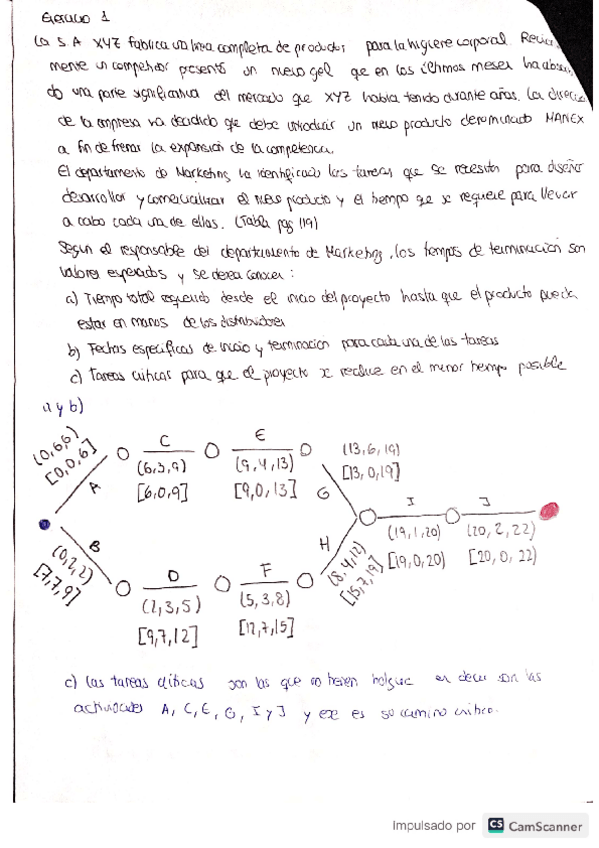 Ejercicio 1
La S.A XYZ fabrica una linea completa de productos para la higiene corporal. Recien
mente un competidor presentó un nuevo gel que en los últimos meses ha absor
do una parte significativa del mercado que XYZ habia tenido durante años. La direcc
de la empresa ha decidido que debe introducir un nuevo producto denominado MANEX
a fin de frenar la expansión de la competencia.
El departamento de Marketing ha identificado las tareas que se necesitan para diseñar
desarrollar y comercializar el nuevo producto y el tiempo que se requiere para llevar
a cabo cada una de ellas. (Tabla pag 119)
Según el responsable del departamento de Marketing, los tiempos de terminación son
valores esperados y se desea conocer:
a) Tiempo total requerido desde el inicio del proyecto hasta que el producto pueda
estar en manos de los distribuidores
b) Fechas especificas de inicio y terminación para cada una de las tareas
c) Tareas criticas para que el proyecto se realice en el menor tiempo posible
a y b)
(0,6,6)
[0,0,6]
A
C
(6,3,9)
[6,0,9]
E
(9,4,13)
[9,0,13]
(13,6,19)
[13,0,19]
G
I
(19,1,20)
[19,0,20]
J
(20,2,22)
[20,0,22]
B
(0,2,2)
[7,7,9]
D
(2,3,5)
[9,7,12]
F
(5,3,8)
[12,7,15]
H
(8,4,12)
[15,7,19]
c) Las tareas criticas son las que no tienen holgura es decir son las
actividades A, C, E, G, I y J y ese es su camino critico.
Impulsado por CS CamScanner